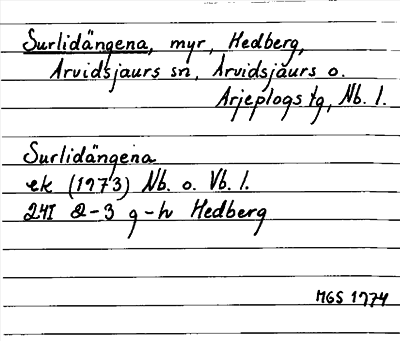 Surlidängena, myr, Hedberg,
Arvidsjaurs sn, Arvidsjaurs o.
Arjeplogs tg, Nb. l.
Surlidängena
ek (1973) Nb. o. Vb. l.
24I 2-3 g-h Hedberg
MGS 1974